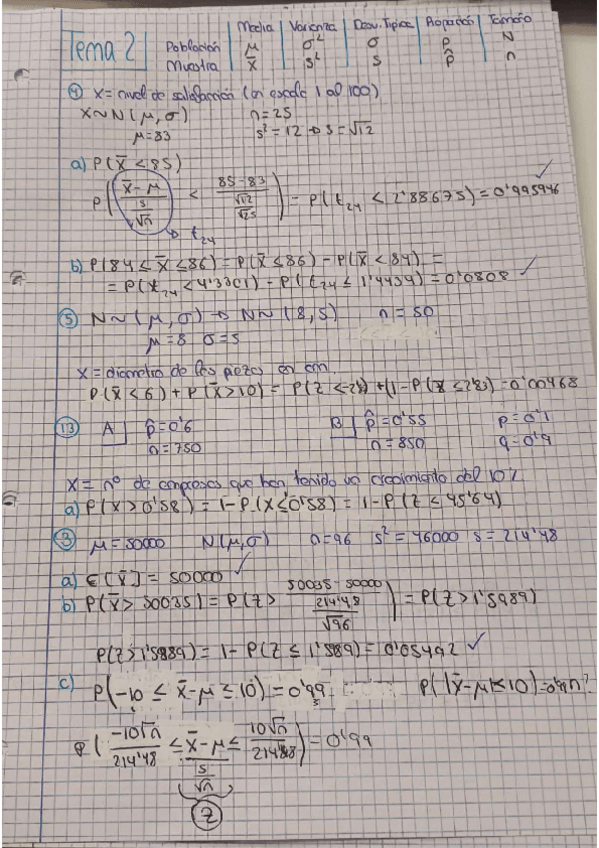 Tema 2
Media | Varianza | Desv. Típica | Proporción | Tamaño
Población μ σ² σ P N
Muestra x̄ s² s p̂ n
④ X = nivel de satisfacción (en escala 1 al 100)
X ~ N(μ, σ) n = 25
μ = 83 s² = 12 → s = √12
a) P(X̄ < 85) ✓
P( (X̄ - μ)/(s/√n) < (85-83)/(√12/√25) ) = P(t₂₄ < 2'88675) = 0'995946
↳ t₂₄
b) P(84 ≤ X̄ ≤ 86) = P(X̄ ≤ 86) - P(X̄ < 84) =
= P(t₂₄ < 4'3301) - P(t₂₄ ≤ 1'4434) = 0'0808 ✓
⑤ N ~ (μ, σ) → N ~ (8, 5) n = 50
μ = 8 σ = 5
X = diámetro de las piezas en cm.
P(X̄ < 6) + P(X̄ > 10) = P(Z < -2'8) + (1 - P(Z ≤ 2'83) = 0'00468
⑬ A p̂ = 0'6 B p̂ = 0'55 p = 0'1
n = 750 n = 850 q = 0'9
X = nº de empresas que han tenido un crecimiento del 10%
a) P(X > 0'58) = 1 - P(X ≤ 0'58) = 1 - P(Z ≤ 45'64)
③ μ = 50000 N(μ, σ) n = 96 s² = 46000 s = 214'48
a) E[X̄] = 50000 ✓
b) P(X̄ > 50035) = P(Z > (50035 - 50000)/(214'48/√96)) = P(Z > 1'5989)
P(Z > 1'5889) = 1 - P(Z ≤ 1'589) = 0'05492 ✓
c) P(-10 ≤ X̄ - μ ≥ 10) = 0'99 P(|X̄ - μ| < 10) =
P( -10√n/214'48 ≤ (X̄ - μ)/(s/√n) ≤ 10√n/214'48 ) = 0'99
Z